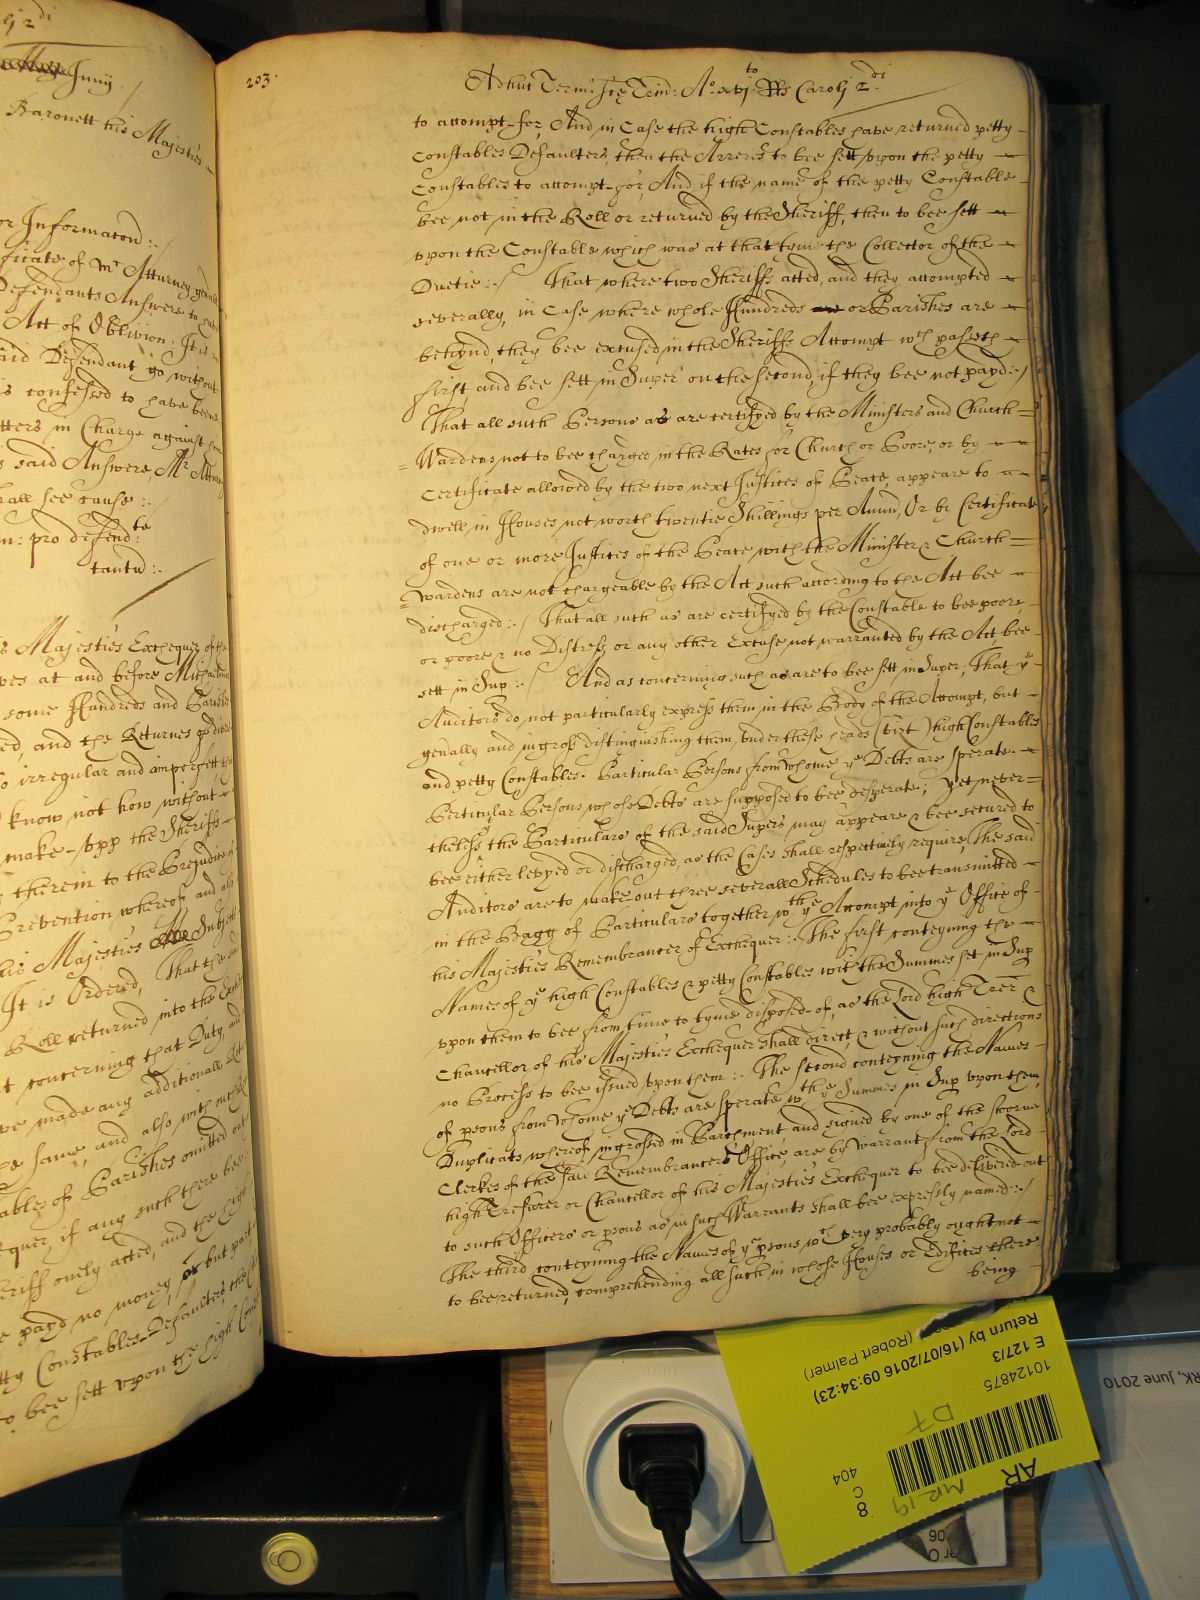 lj 2di
Junij :/
Baronett his Majesties
or Informacon :/
ficate of Mr Atturney genall
Defendants Answere to
Act of Oblivion. It is
aid Defendant go without
is confessed to have beene
tters in Charge against
s said Answere, Mr Atturney
hall see cause :
n: pro defend:te
tantu :
s Majesties Exchequer of the
ves at and before Michaelmas
some Hundreds and Parishes
ed, and the Returnes
so irregular and imperfett
know not how without
make-vpp the Sheriffs
therein to the Prejudice
Prevention whereof and
his Majesties Subjects
It is Ordered, That the
Roll returned into the
t concerning that Duty, and
ve made any additionall
he same, and also with
ables of Parishes omitted out
quer, if any such there bee
eriff onely acted, and the high
e payd no money, or but part
tty Constables Defaulters, the
to bee sett vpon the high
203.
Adhuc Termi Scē Trin: Ao xvjto RRs Carolj 2di
to accompt for, And in Case the high Constables have returned petty
Constables Defaulters, then the Arreres to bee sett vpon the petty
Constables to accompt for, And if the name of the petty Constable
bee not in the Roll or returned by the Sheriff, then to bee sett
vpon the Constable which was at that tyme the Collector of the
Duetie :/ That where two Sheriffs acted, and they accompted
severally, in Case where whole Hundreds or Parishes are
behynd, they bee excused in the Sheriffs Accompt wch passeth
first and bee sett in Super on the second, if they bee not payd :/
That all such Persons as are certifyed by the Ministers and Church=
=Wardens not to bee charged in the Rates for Church or Poore, or by
Certificate allowed by the two next Justices of Peace, appeare to
dwell in Houses not worth twentie Shillings per Annu, Or by Certificate
of one or more Justices of the Peace with the Minister & Church=
=wardens are not chargeable by the Act such according to the Act bee
discharged :/ That all such as are certifyed by the Constable to bee poore,
or poore & no Distress, or any other Excuse not warranted by the Act, bee
sett in Sup :/ And as concerning such as are to bee sett in Super, That ye
Auditors do not particularly express them in the Body of the Accompt, but
genally and in gross distinguishing them, vnder these heads (vizt) high Constables
and petty Constables. Particular Persons from whome ye Debts are sperate.
Perticular Persons whose Debts are supposed to bee desperate; Yet never=
theless the Particulars of the said Supers may appeare & bee secured to
bee either levyed or discharged, as the Cases shall respectively require, The said
Auditors are to make out three severall Schedules to bee transmitted
in the Bagg of Particulars together wth ye Accompt into ye Office of
his Majesties Remembrancer of Exchequer :. The first conteyning the
Names of ye high Constables & petty Constables with the Summes set in Sup
vpon them to bee from time to tyme disposed of, as the Lord high Trēr &
Chancellor of his Majesties Exchequer shall direct, & without such directions
no Process to bee issued vpon them :. The second conteyning the Names
of psons from whome ye Debts are sperate wth ye Summes in Sup vpon them,
Duplicats whereof ingrossed in Parchment, and signed by one of the sworne
Clerkes of the said Remembrancers Office, are by warrant from the Lord
high Tresurer or Chancellor of his Majesties Exchequer to bee delivered out
to such Officers or psons as in such Warrants shall bee expressly named :/
The third conteyning the Names of ye psons wch very probably ought not
to bee returned, comprehending all such in whose Houses or Edifices there
being
Return by (16/07/2016 09:34:23)
(Robert Palmer)
E 127/3
10124875
D7
AR
MR 19
8
C
404
RK, June 2010
06